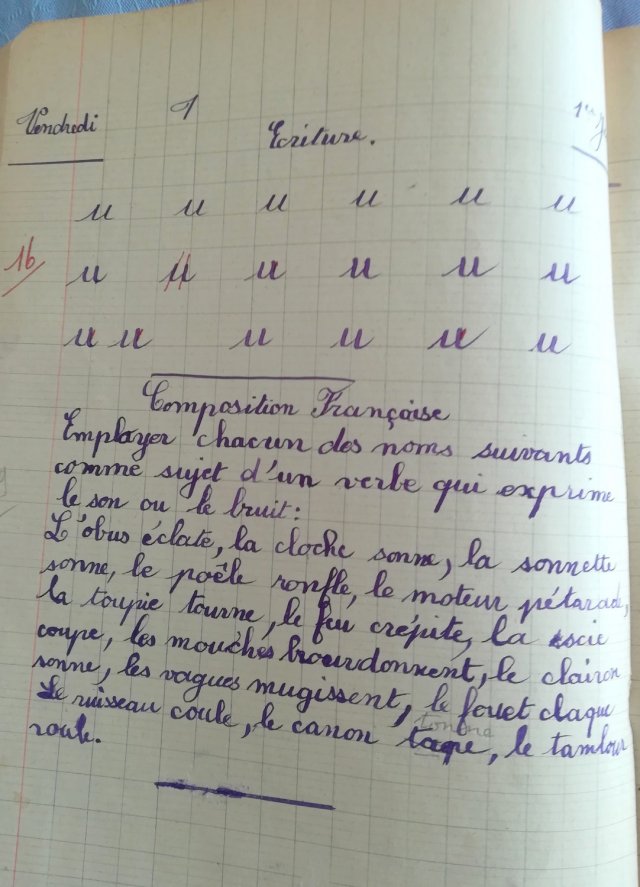 Vendredi 1er
Ecriture.
u u u u u u
16 u u u u u u
u u u u u u
Composition Française
Employer chacun des noms suivants
comme sujet d'un verbe qui exprime
le son ou le bruit:
L'obus éclate, la cloche sonne, la sonnette
sonne, le poêle ronfle, le moteur pétarade,
la toupie tourne, le feu crépite, la scie
coupe, les mouches bourdonnent, le clairon
sonne, les vagues mugissent, le fouet claque
Le ruisseau coule, le canon tape, le tambour
tonne
roule.